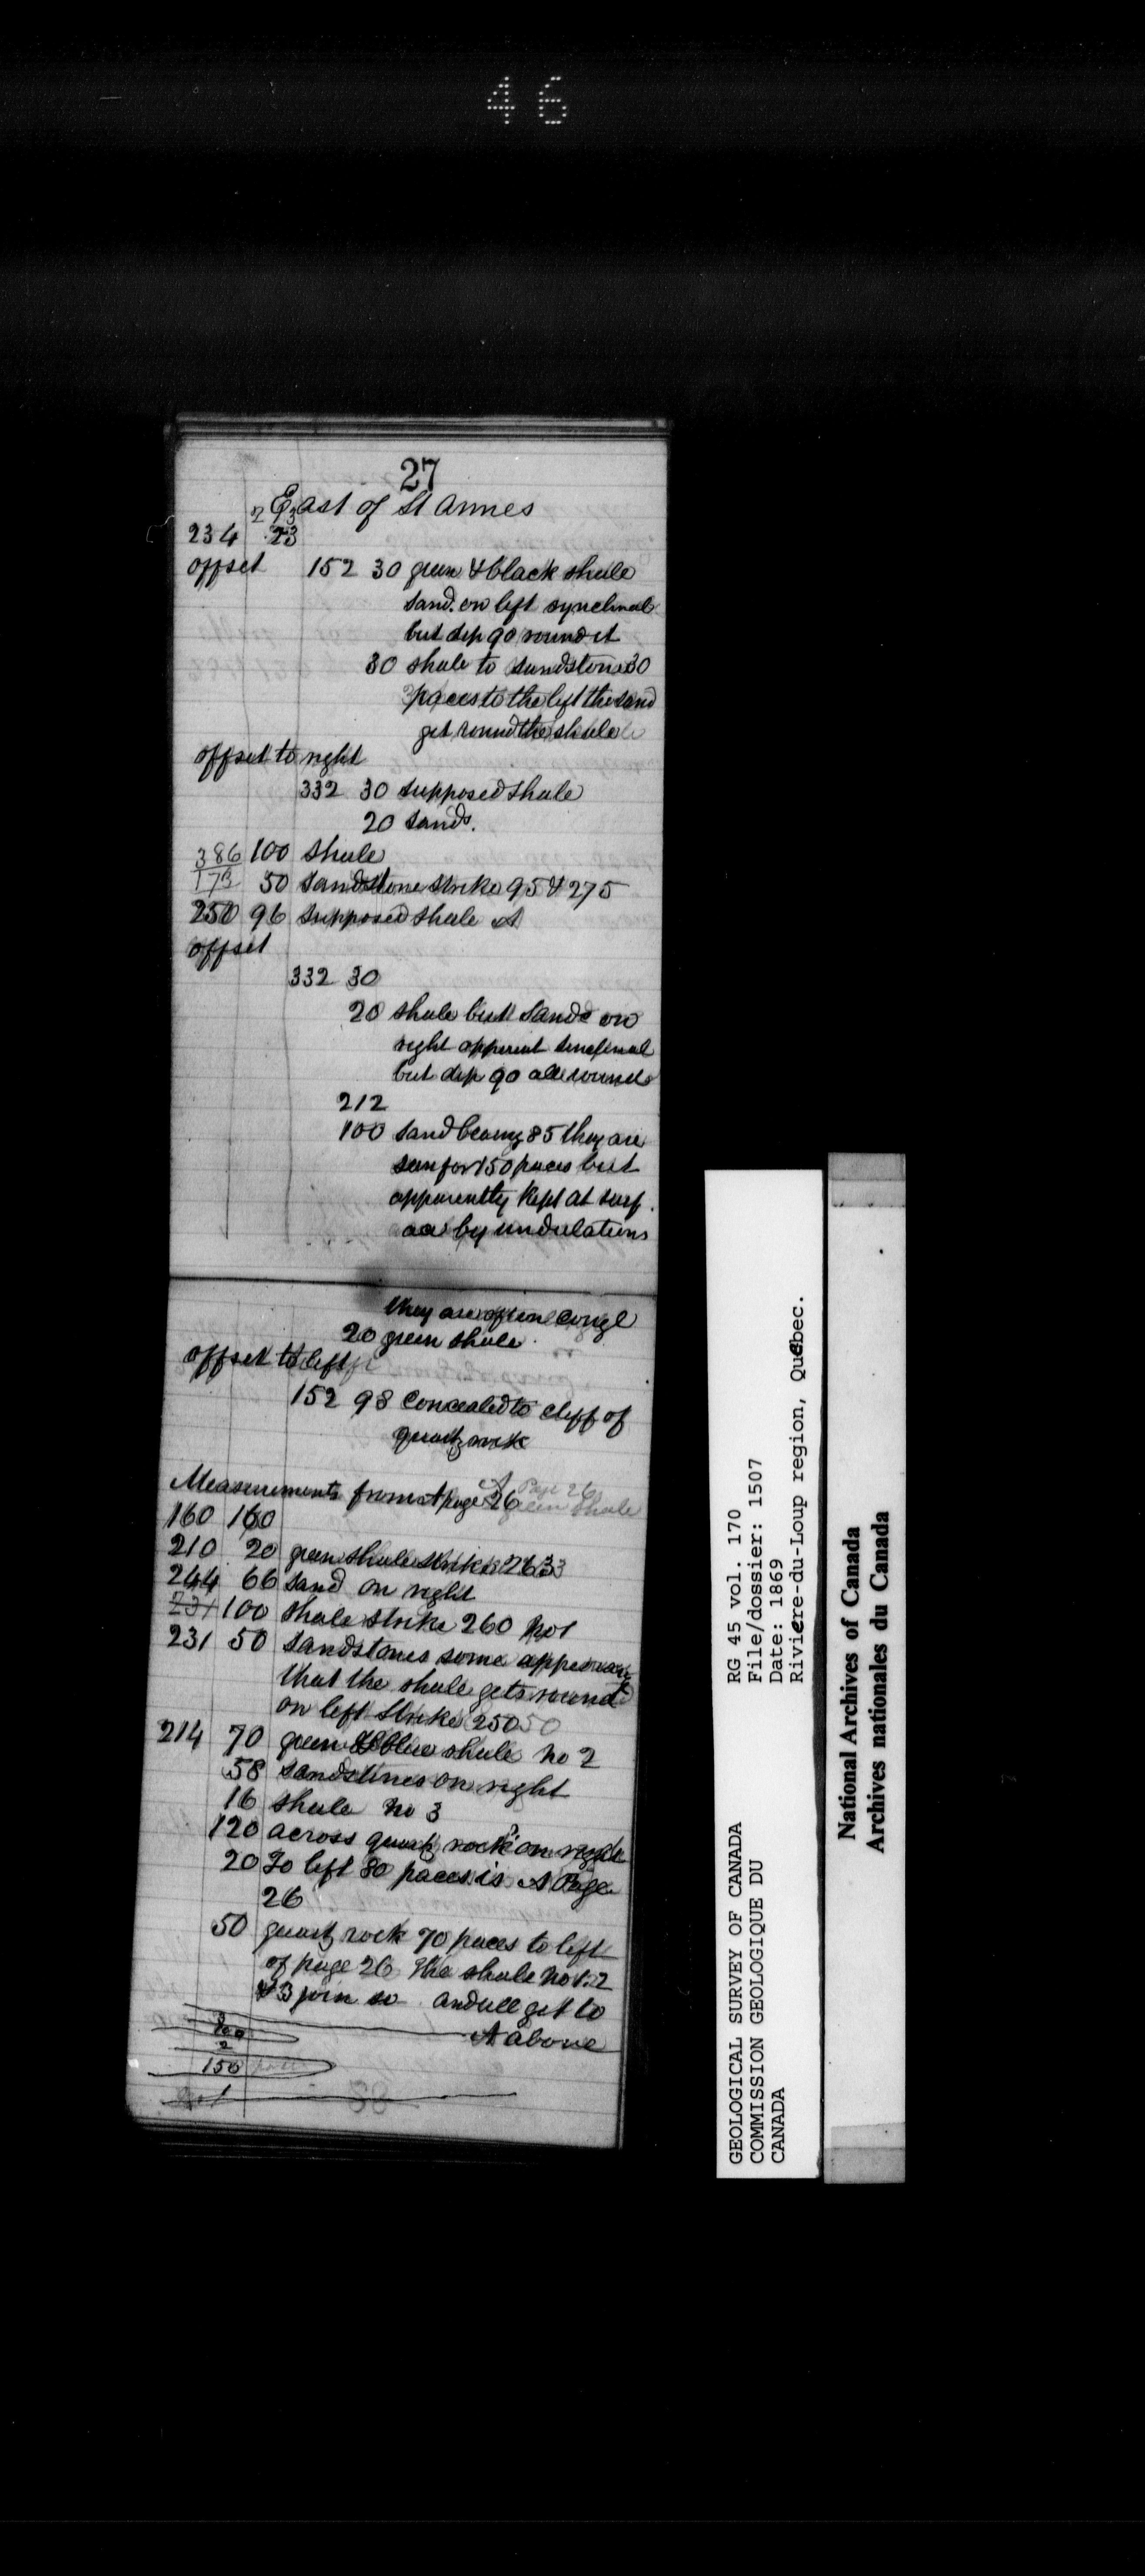 46
27
East of St Annes
234 23
offset 152 30 green & black shale
sand. on left synclinal
but dip go round it
30 shale to sandstone 30
paces to the left the sand
get round the shale
offset to right
332 30 supposed shale
20 sands.
386 100 shale
173 50 sandstone strike 95 & 275
250 96 supposed shale A
offset
332 30
20 shale but sands on
right apparent
but dip go all round
212
100 sand bearing 85 they are
seen for 150 paces but
apparently kept at surf.
ace by undulations
they are often congl
20 green shale
offset to left
152 98 concealed to cliff of
quartz rock
Measurements from A page 26
160 160
210 20 green shale strike 263
244 66 sand on right
231 100 shale strike 260 No 1
231 50 sandstones some appearance
that the shale gets round
on left strike 250
214 70 green & blue shale No 2
58 sandstones on right
16 shale No 3
120 across quartz rock on right
20 To left 80 paces is A Page
26
50 quartz rock 70 paces to left
of page 26 The shale No 1. 2
& 3 join so and all get to
A above
2
150
GEOLOGICAL SURVEY OF CANADA
COMMISSION GEOLOGIQUE DU
CANADA
RG 45 vol. 170
File/dossier: 1507
Date: 1869
Riviere-du-Loup region, Quebec.
National Archives of Canada
Archives nationales du Canada